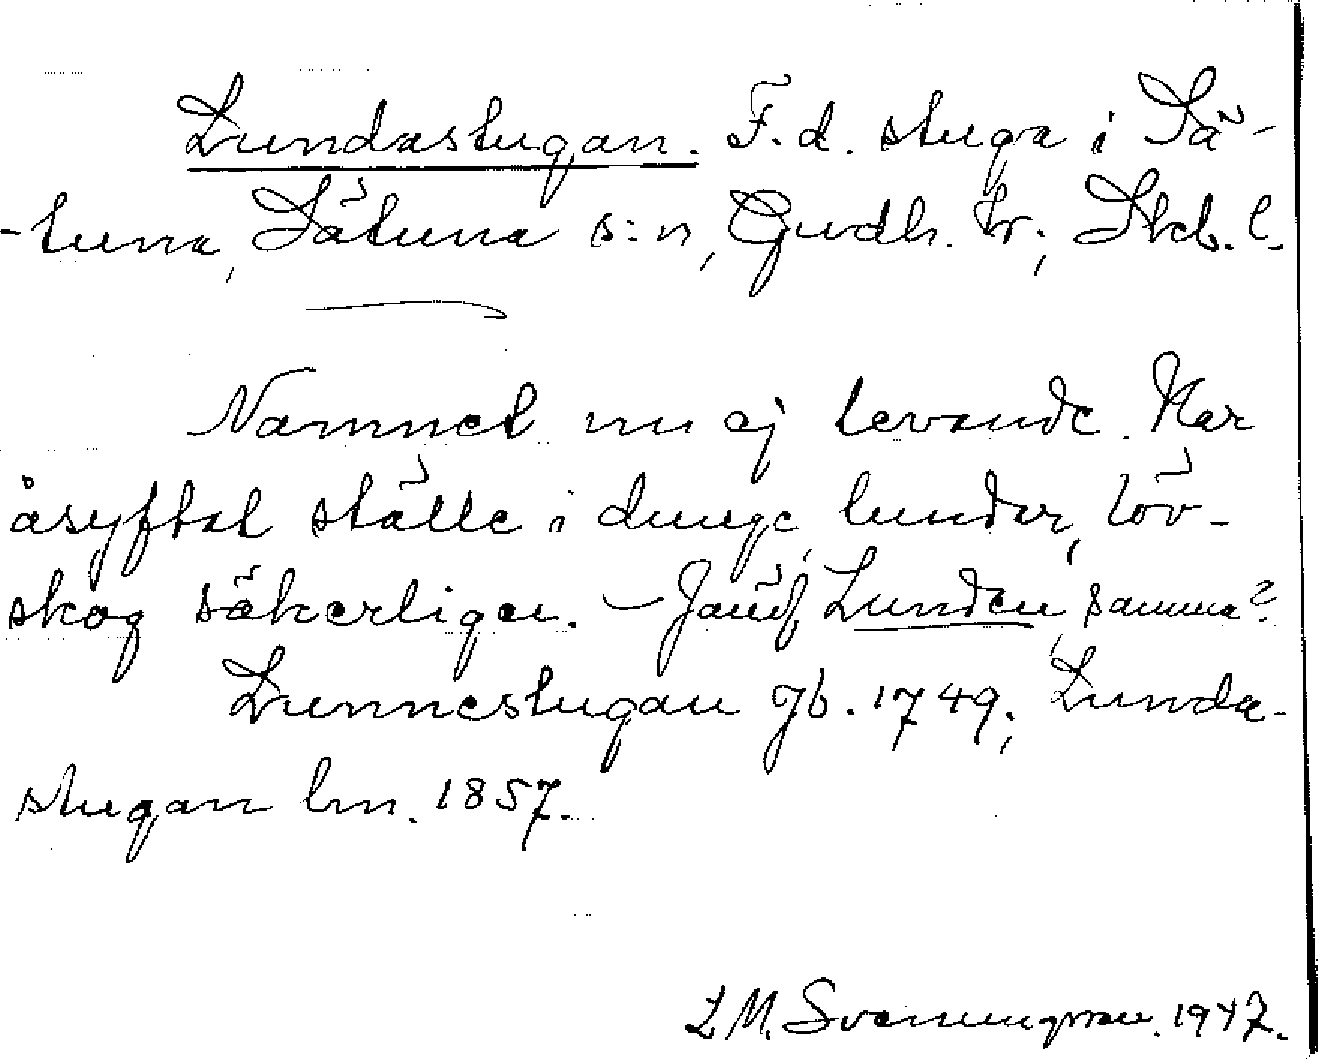 Lundastugan. F.d. stuga i Sä-
-tuna, Sätuna s:n, Gudh. hr; Skb. l.
Namnet nu ej levande. Har
åsyftat ställe i dunge, lunder, löv-
skog säkerligen. – Jämf Lunden, samma?
Lunnestugan Jb. 1749; Lunda-
stugan lm. 1857.
L M. Svanungsson. 1947.